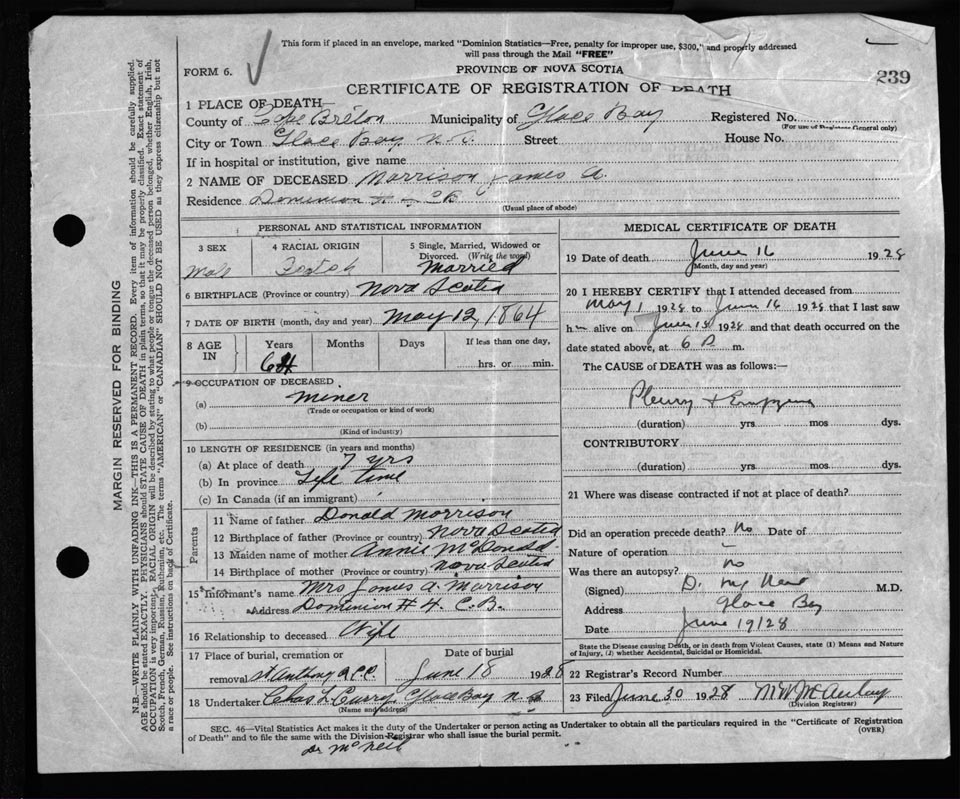 This form if placed in an envelope, marked "Dominion Statistics—Free, penalty for improper use, $300," and properly addressed
will pass through the Mail "FREE"
FORM 6.
PROVINCE OF NOVA SCOTIA
239
CERTIFICATE OF REGISTRATION OF DEATH
1 PLACE OF DEATH—
County of Cape Breton Municipality of Glace Bay Registered No.
(For use of Registrar General only)
City or Town Glace Bay N.S. Street House No.
If in hospital or institution, give name
2 NAME OF DECEASED Morrison James A.
Residence Dominion
(Usual place of abode)
PERSONAL AND STATISTICAL INFORMATION
3 SEX 4 RACIAL ORIGIN 5 Single, Married, Widowed or Divorced. (Write the word)
Male Scotch Married
6 BIRTHPLACE (Province or country) Nova Scotia
7 DATE OF BIRTH (month, day and year) May 12, 1864
8 AGE IN Years Months Days If less than one day,
64 hrs. or min.
9 OCCUPATION OF DECEASED
(a) Miner
(Trade or occupation or kind of work)
(b)
(Kind of industry)
10 LENGTH OF RESIDENCE (in years and months)
(a) At place of death 7 yrs
(b) In province Life time
(c) In Canada (if an immigrant)
Parents
11 Name of father Donald Morrison
12 Birthplace of father (Province or country) Nova Scotia
13 Maiden name of mother Annie McDonald
14 Birthplace of mother (Province or country) Nova Scotia
15 Informant's name Mrs James A. Morrison
Address Dominion #4. C.B.
16 Relationship to deceased Wife
17 Place of burial, cremation or removal St Anthony Date of burial June 18 1928
18 Undertaker Chas L Curry, Glace Bay N.S.
(Name and address)
MEDICAL CERTIFICATE OF DEATH
19 Date of death June 16 1928
(Month, day and year)
20 I HEREBY CERTIFY that I attended deceased from
May 1 1928 to June 16 1928 that I last saw
h m alive on June 15 1928 and that death occurred on the
date stated above, at 6 P m.
The CAUSE of DEATH was as follows:—
Pleurisy + Empyema
(duration) yrs mos dys.
CONTRIBUTORY
(duration) yrs. mos. dys.
21 Where was disease contracted if not at place of death?
Did an operation precede death? No Date of
Nature of operation —
Was there an autopsy? No
(Signed) D. M.D.
Address Glace Bay
Date June 19/28
State the Disease causing Death, or in death from Violent Causes, state (1) Means and Nature of Injury, (2) whether Accidental, Suicidal or Homicidal.
22 Registrar's Record Number
23 Filed June 30 1928 McAulay
(Division Registrar)
SEC. 46—Vital Statistics Act makes it the duty of the Undertaker or person acting as Undertaker to obtain all the particulars required in the "Certificate of Registration
of Death" and to file the same with the Division Registrar who shall issue the burial permit.
(OVER)
Dr McNeil
MARGIN RESERVED FOR BINDING
N.B.—WRITE PLAINLY WITH UNFADING INK—THIS IS A PERMANENT RECORD. Every item of information should be carefully supplied.
AGE should be stated EXACTLY. PHYSICIANS should STATE CAUSE OF DEATH in plain terms, so that it may be properly classified. Exact statement of
OCCUPATION is very important. RACIAL ORIGIN will be described by stating to what people or tongue the deceased person belonged, whether English, Irish,
Scotch, French, German, Russian, Ruthenian, etc. The terms "AMERICAN" or "CANADIAN" SHOULD NOT BE USED as they express citizenship but not
a race or people. See instructions on back of Certificate.